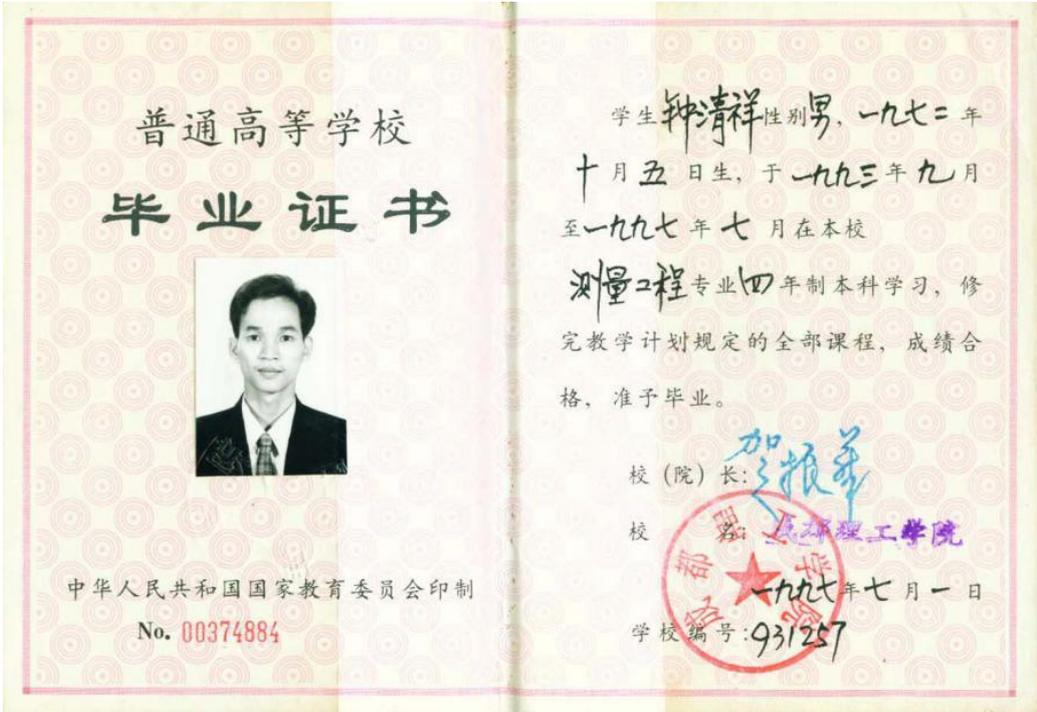 普通高等学校
毕业证书
中华人民共和国国家教育委员会印制
No. 00374884
学生钟清祥性别男，一九七二年
十月五日生，于一九九三年九月
至一九九七年七月在本校
测量工程专业四年制本科学习，修
完教学计划规定的全部课程，成绩合
格，准予毕业。
校（院）长：贺振华
校名：成都理工学院
成都理工学院
一九九七年七月一日
学校编号：931257